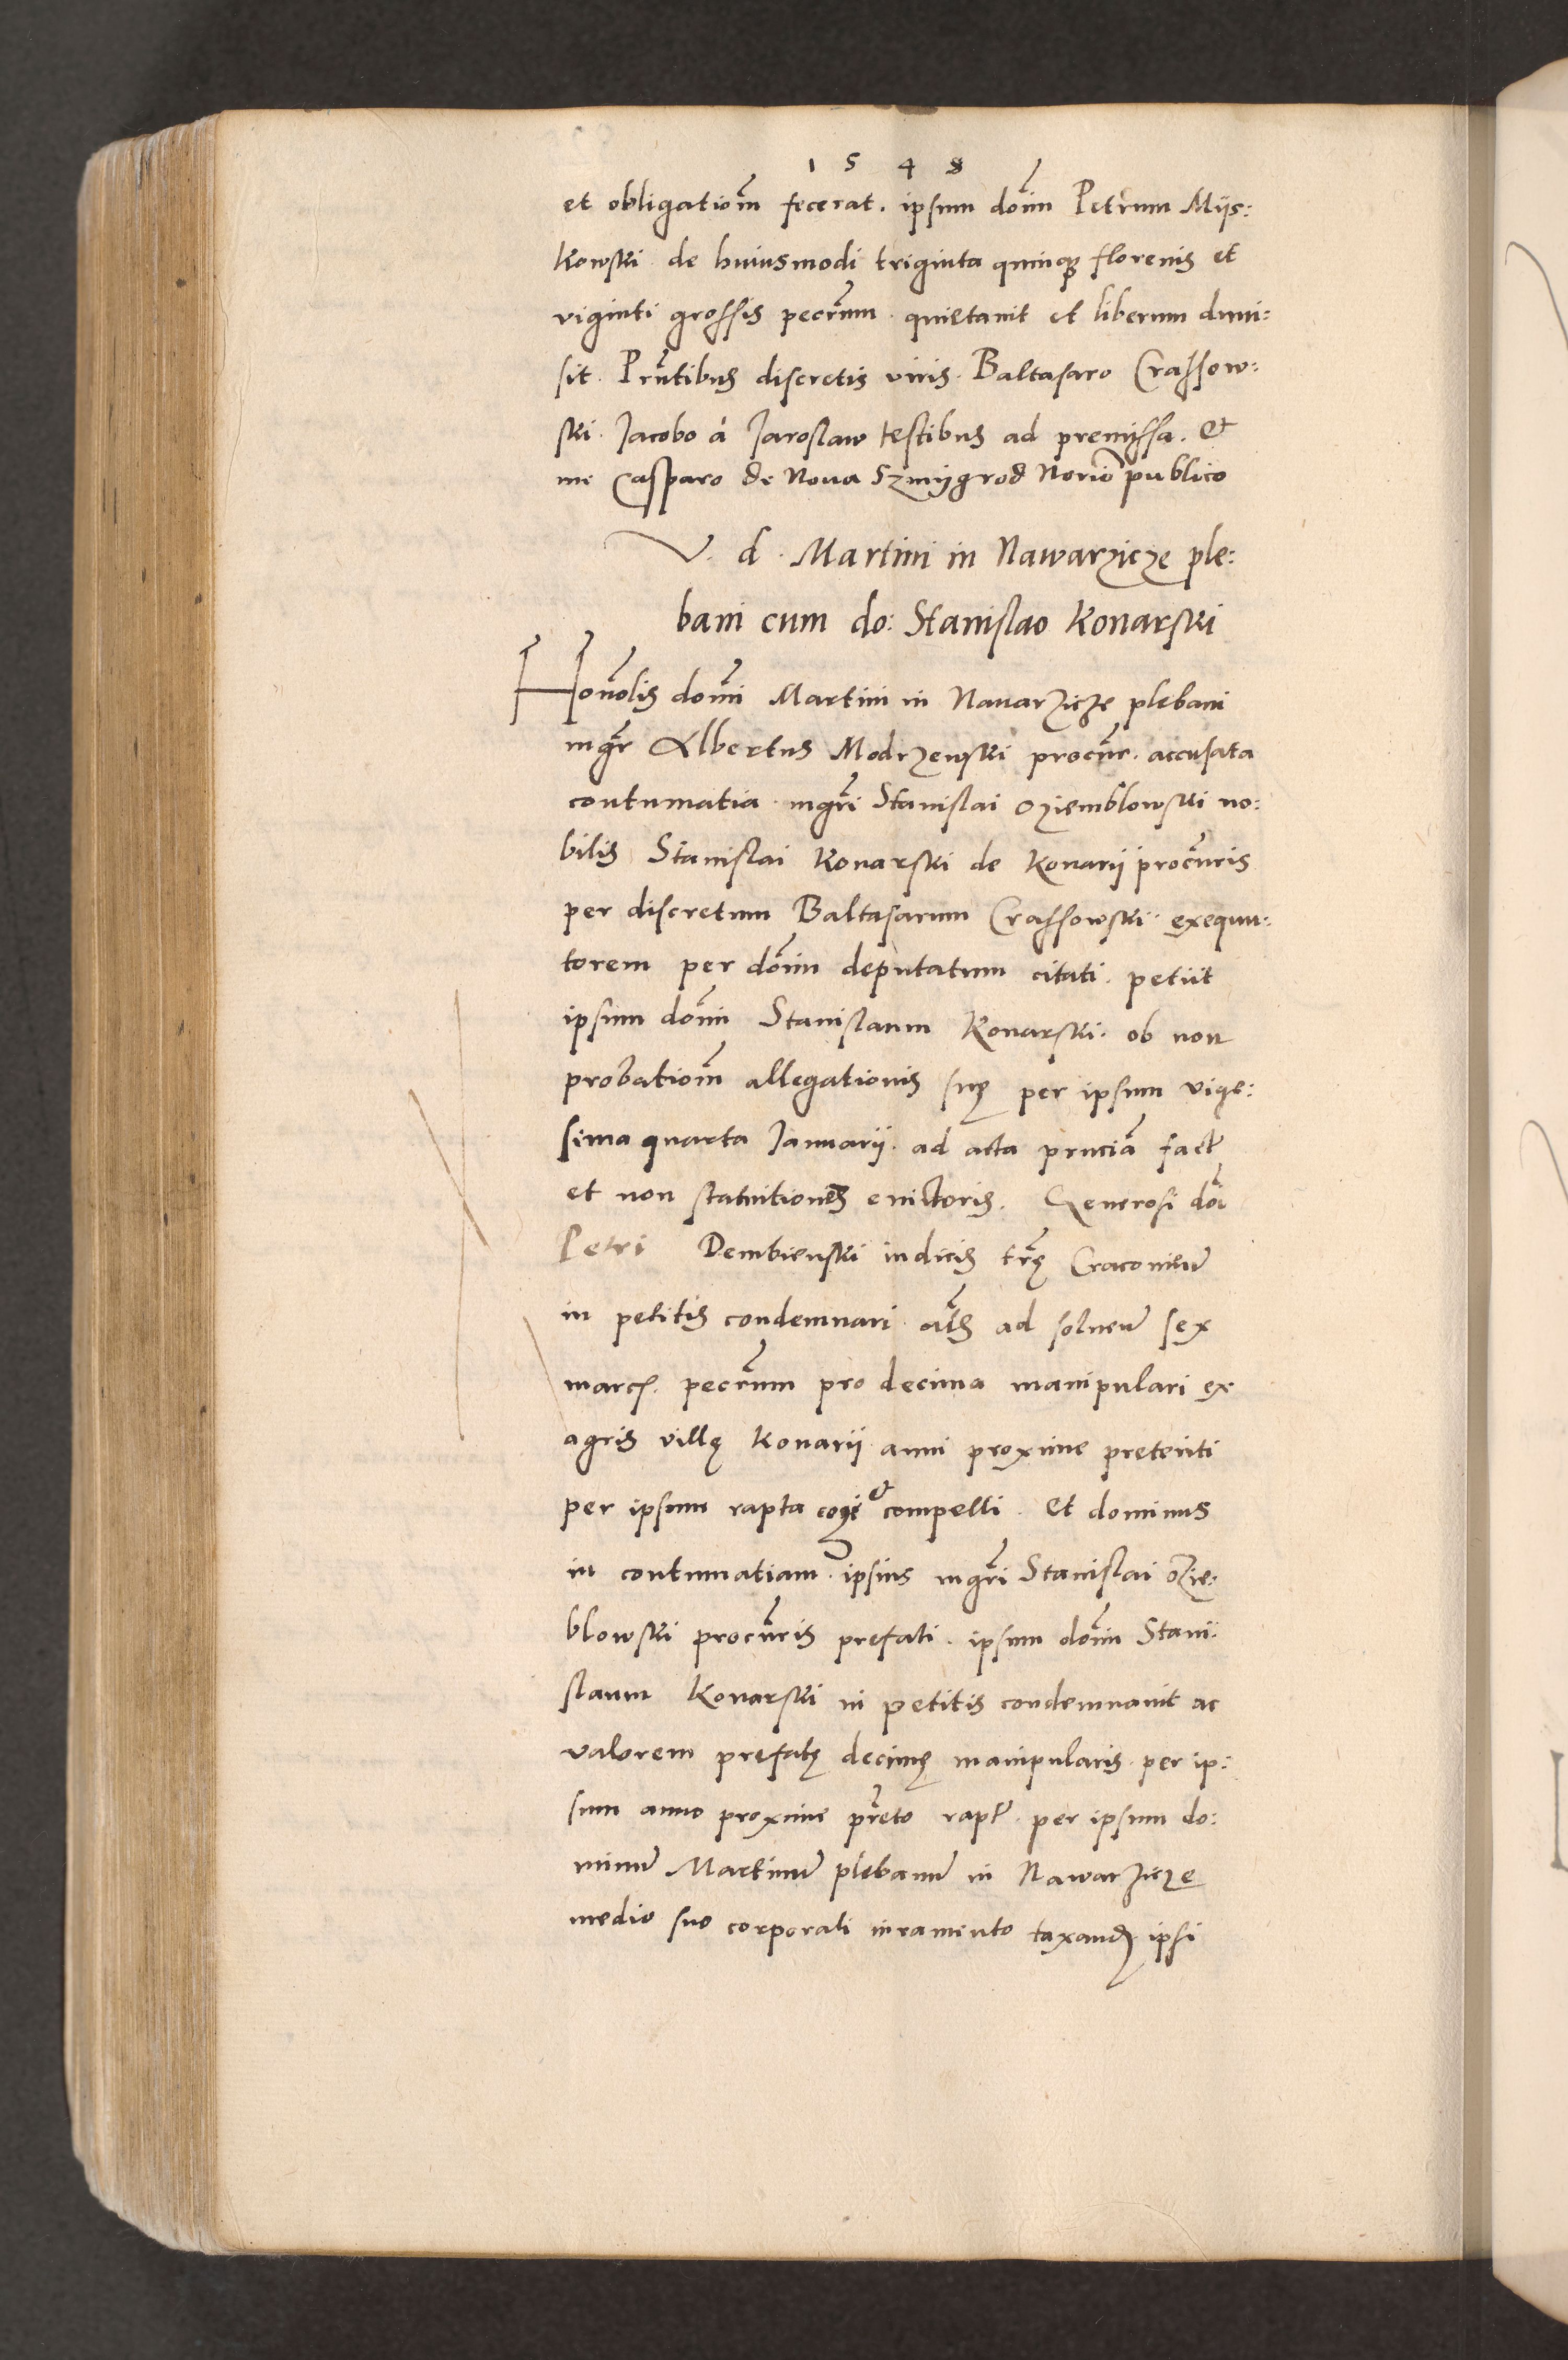 1548
et obligationẽ fecerat. ipsum doñm Petrum Mijs:
kowski de huiusmodi triginta quinqꝫ florenis et
viginti grossis pecũrum quietauit et liberum dimi:
sit. Pñtibus discretis viris. Baltasaro Crassow:
ski. Jacobo á Jaroslaw testibus ad premissa. Et
me Casparo de Noua Szmijgrod Norio publico
V. d. Martini in Nawarzicze ple:
bani cum do: Stanislao Konarski
Honolis domni Martini in Nauarzicze plebani
mgr Albertus Modrzewski procur. accusata
contumatia mgri Stanislai Oziemblowski no:
bilis Stanislai Konarski de Konarij procuris
per discretum Baltasarum Crassowski exequu:
torem per doñm deputatum citati. petiit
ipsum doñm Stanislaum Konarski. ob non
probationẽ allegationis suę per ipsum vige:
sima quarta Januarij. ad acta prnciã fact
et non statuitiones euictoris. Generosi doi
Petri Dembienski iudicis trę Cracouien
in petitis condemnari ac ad soluen sex
marcs. pecũrum pro decima manipulari ex
agris villę Konarij anni proxime preteriti
per ipsum rapta cogi et compelli. Et dominus
in contumatiam ipsius mgri Stanislai Ozie:
blowski procuris prefati. ipsum doñm Stani:
slaum Konarski in petitis condemnauit ac
valorem prefatę decimę manipularis per ip:
sum anno proxime preto rapt. per ipsum do:
minum Martinum plebanum in Nawarzicze
medio suo corporali iuramento taxand ipsi